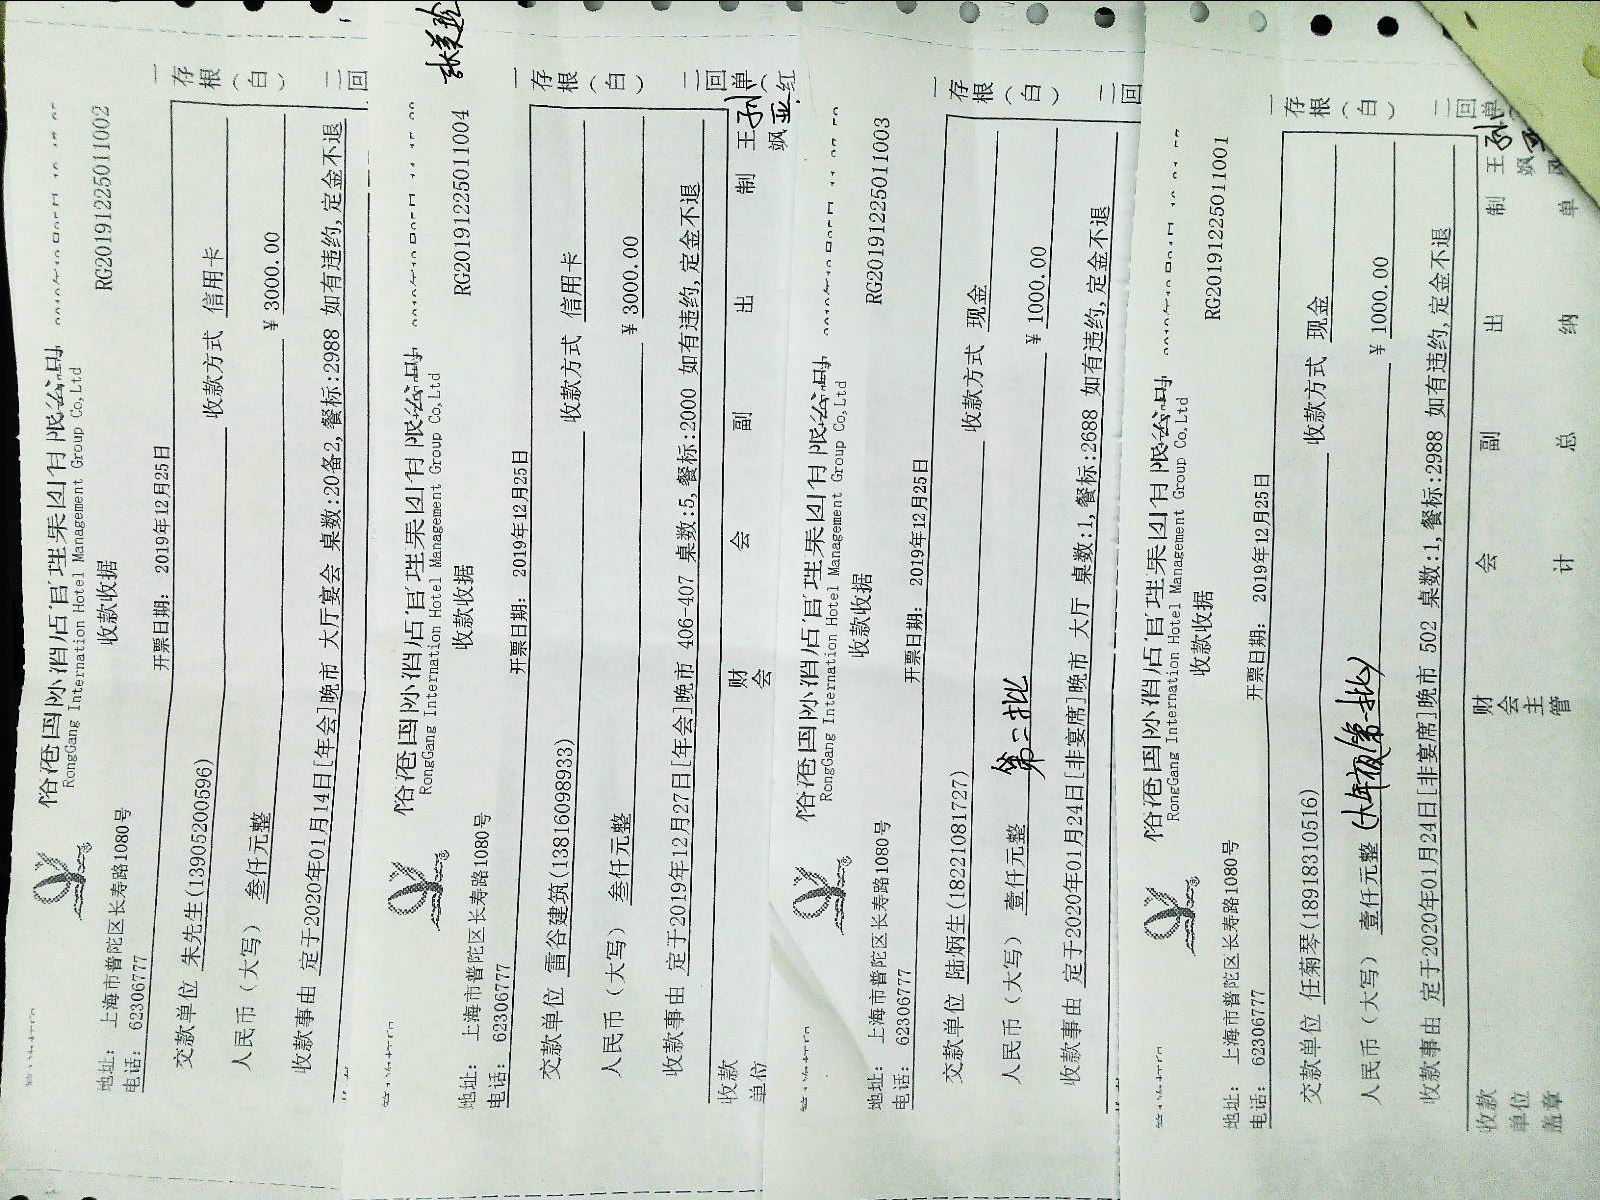 RongGang International Hotel Management Group Co,Ltd
收款收据
RG20191225011002
地址： 上海市普陀区长寿路1080号
电话： 62306777
开票日期： 2019年12月25日
一存根（白）
二回
交款单位 朱先生(13905200596) 收款方式 信用卡
人民币（大写） 叁仟元整 ¥3000.00
收款事由 定于2020年01月14日[年会]晚市 大厅宴会 桌数:20备2,餐标:2988 如有违约,定金不退
RongGang International Hotel Management Group Co,Ltd
收款收据
RG20191225011004
地址： 上海市普陀区长寿路1080号
电话： 62306777
开票日期： 2019年12月25日
一存根（白）
二回单（红
交款单位 雷谷建筑(13816098933) 收款方式 信用卡
人民币（大写） 叁仟元整 ¥3000.00
收款事由 定于2019年12月27日[年会]晚市 406-407 桌数:5,餐标:2000 如有违约,定金不退
收款 财 会 副 出 制 王
单位 会 飒
RongGang International Hotel Management Group Co,Ltd
收款收据
RG20191225011003
地址： 上海市普陀区长寿路1080号
电话： 62306777
开票日期： 2019年12月25日
一存根（白）
二回
交款单位 陆炳生(18221081727) 收款方式 现金
第二批
人民币（大写） 壹仟元整 ¥1000.00
收款事由 定于2020年01月24日[非宴席]晚市 大厅 桌数:1,餐标:2688 如有违约,定金不退
RongGang International Hotel Management Group Co,Ltd
收款收据
RG20191225011001
地址： 上海市普陀区长寿路1080号
电话： 62306777
开票日期： 2019年12月25日
一存根（白）
二回单
交款单位 任菊琴(18918310516) 收款方式 现金
人民币（大写） 壹仟元整 (大年夜第一批) ¥1000.00
收款事由 定于2020年01月24日[非宴席]晚市 502 桌数:1,餐标:2988 如有违约,定金不退
收款 财 会 副 出 制 王
单位 会主 飒
盖章 管 计 总 纳 单